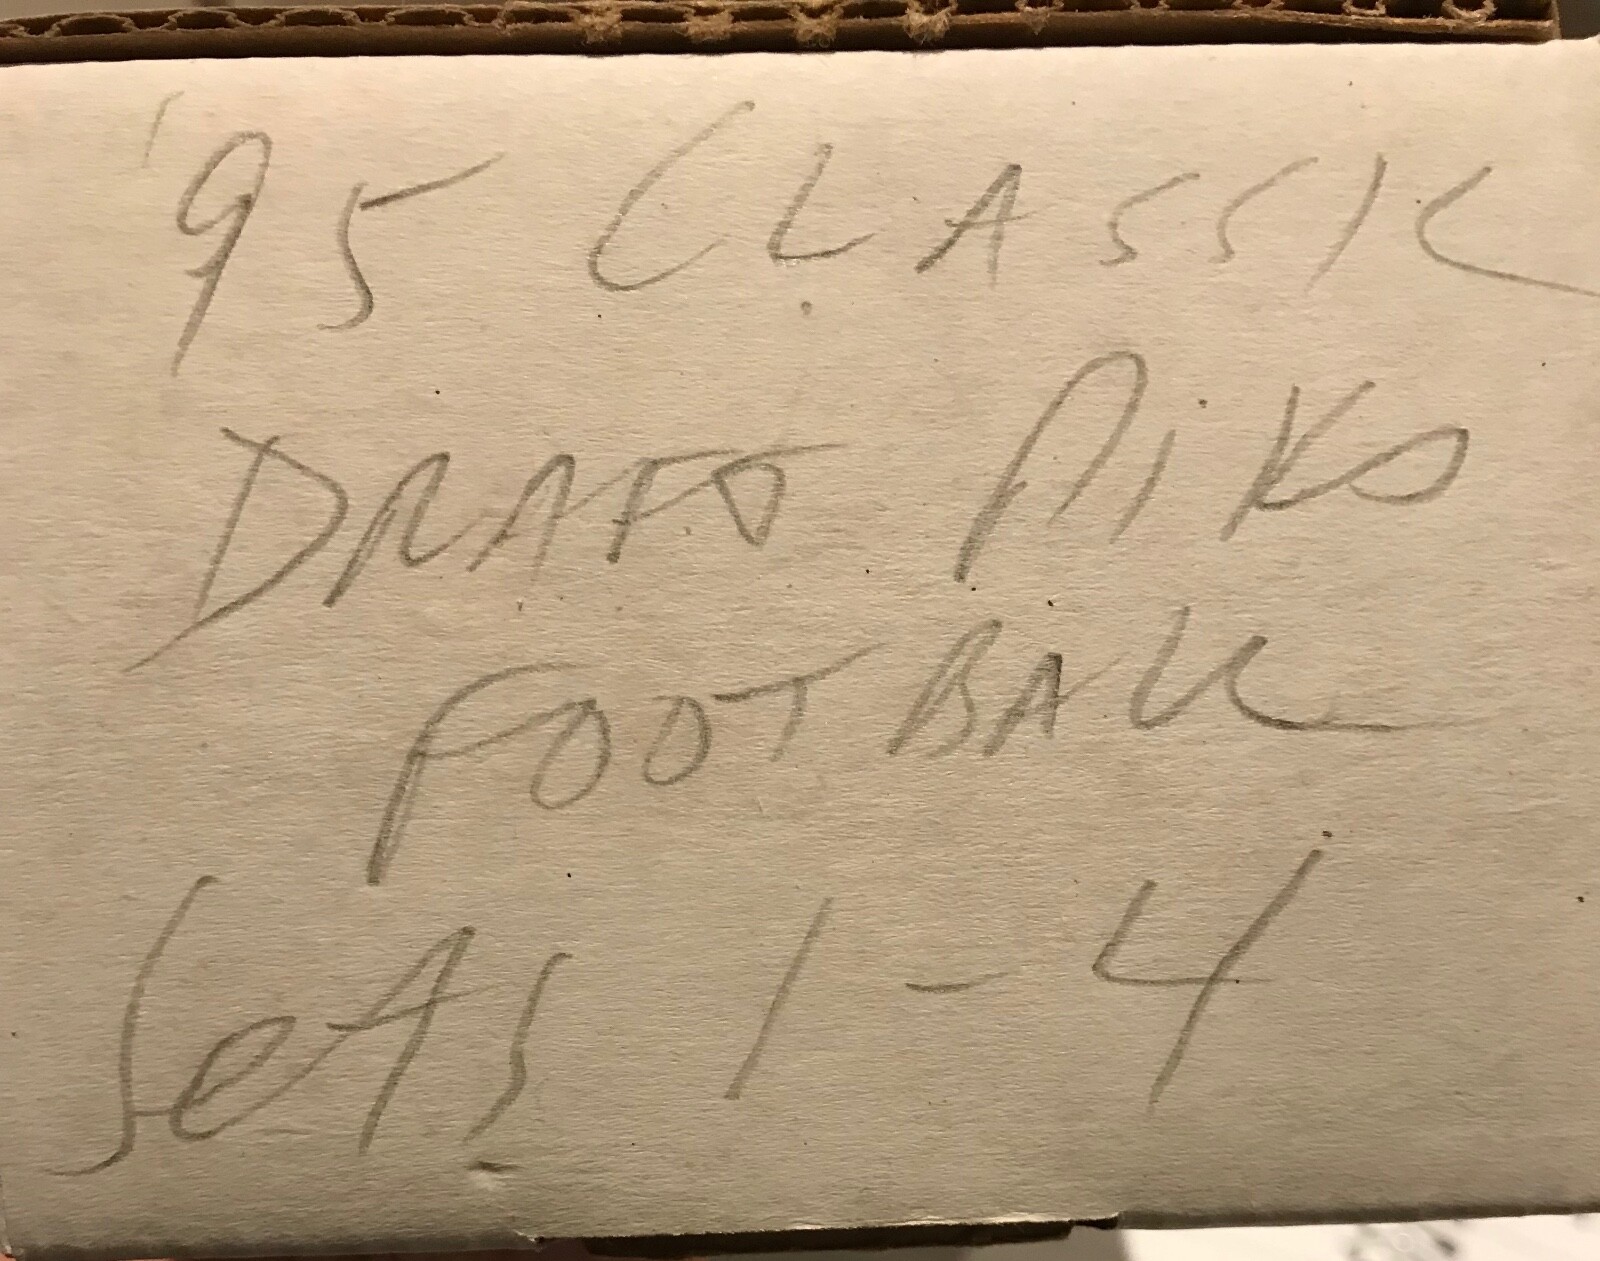 '95 CLASSIC
DRAFT PIKS
FOOTBALL
Sets 1-4